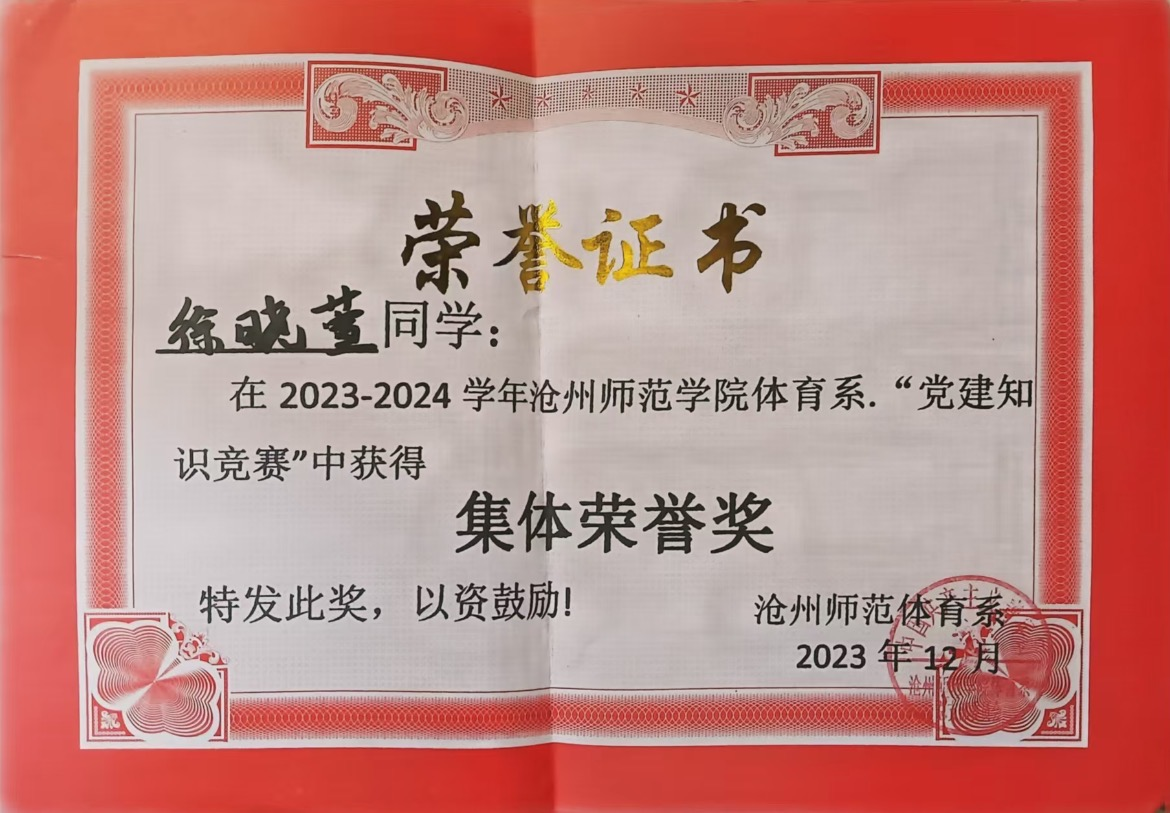 荣誉证书
徐晓萱同学：
在 2023-2024 学年沧州师范学院体育系.“党建知
识竞赛”中获得
集体荣誉奖
特发此奖，以资鼓励!
沧州师范体育系
2023 年 12 月